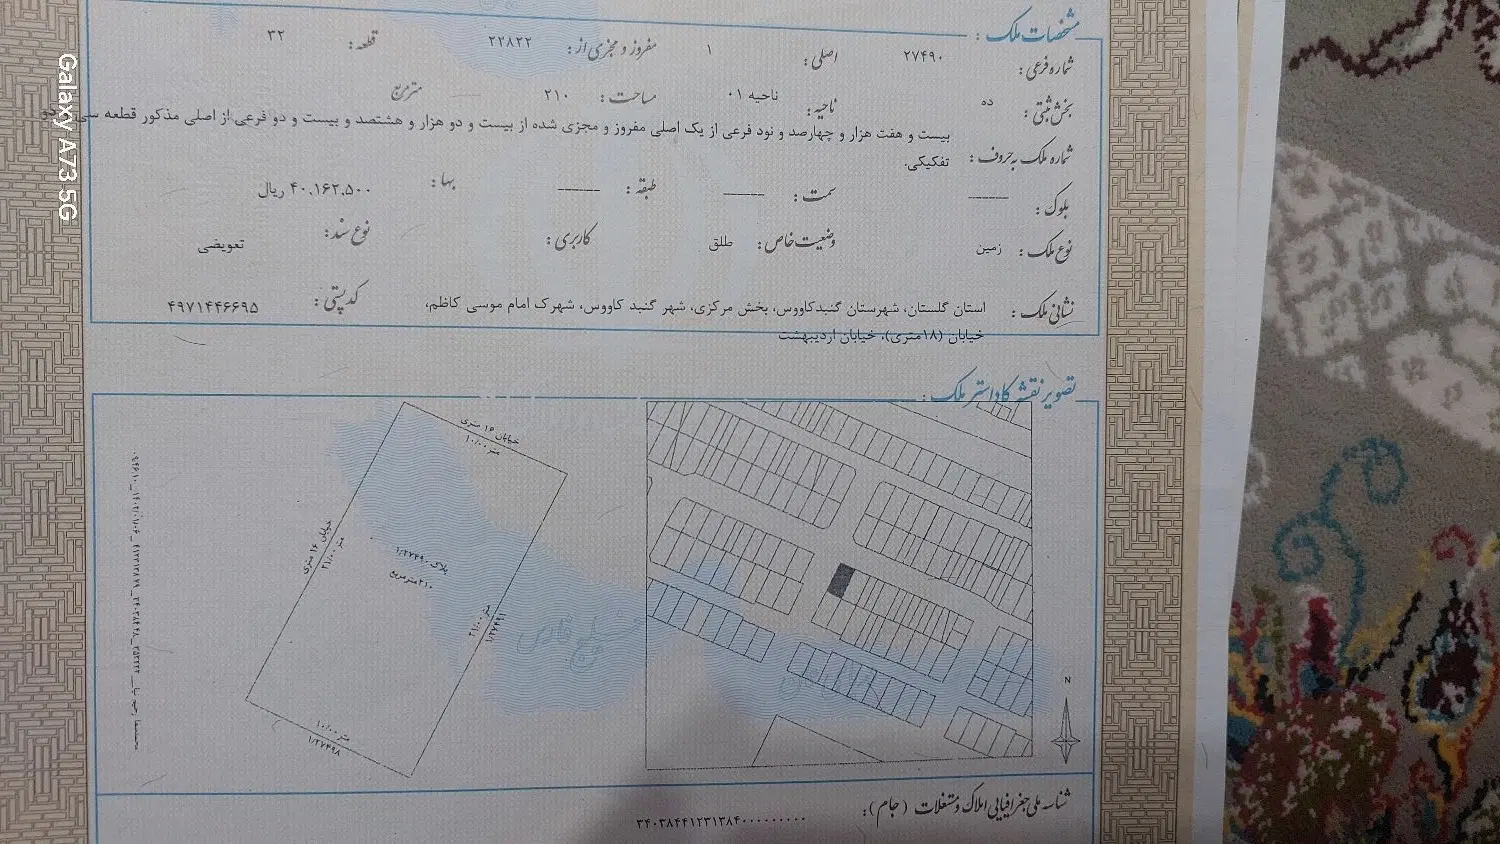 مشخصات ملک :
شماره فرعی : ۲۷۴۹۰ اصلی : ۱ مفروز و مجزی از : ۲۲۸۲۲ قطعه : ۳۲
بخش ثبتی : ده ناحیه : ناحیه ۰۱ مساحت : ۲۱۰ مترمربع
شماره ملک به حروف : بیست و هفت هزار و چهارصد و نود فرعی از یک اصلی مفروز و مجزی شده از بیست و دو هزار و هشتصد و بیست و دو فرعی از اصلی مذکور قطعه سی و دو
تفکیکی.
بلوک : ــــــ سمت : ــــــ طبقه : ــــــ بها : ۴۰,۱۶۲,۵۰۰ ریال
نوع ملک : زمین وضعیت خاص : طلق کاربری : نوع سند : تعویضی
نشانی ملک : استان گلستان، شهرستان گنبدکاووس، بخش مرکزی، شهر گنبد کاووس، شهرک امام موسی کاظم، کد پستی : ۴۹۷۱۴۴۶۶۹۵
خیابان (۱۸متری)، خیابان اردیبهشت
تصویر نقشه کاداستر ملک :
خیابان ۱۶ متری
۱۰/۰۰ متر
خیابان ۱۶ متری
۲۱/۰۰ متر
پلاک ۱/۲۷۴۹۰
۲۱۰ مترمربع
۲۱/۰۰ متر
۱/۲۷۴۹۱
۱۰/۰۰ متر
۱/۲۷۴۹۸
خلیج فارس
N
شناسه ملی جغرافیایی املاک و مستغلات (جام) :
۳۴۰۳۸۴۴۱۲۳۱۳۸۴۰۰۰۰۰۰۰۰۰
Galaxy A73 5G